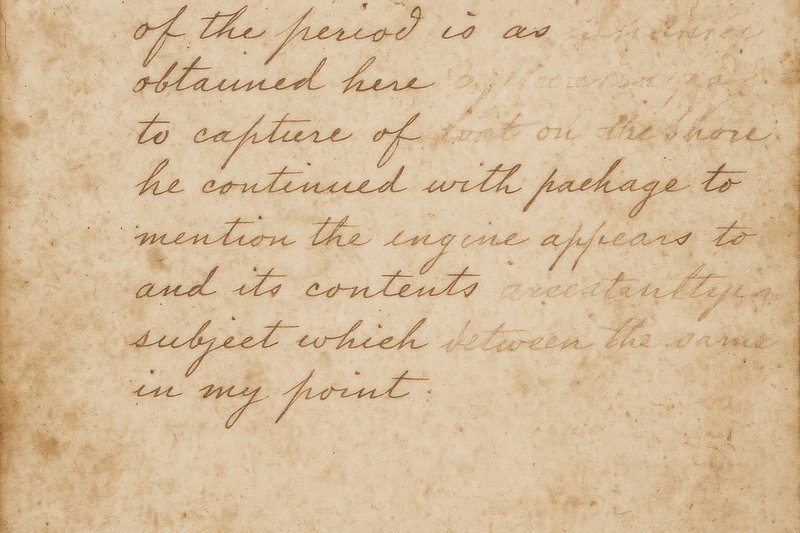 of the period is as
obtauned here
to capture of on the shore
he continued with package to
mention the engine appears to
and its contents
subject which between the same
in my point